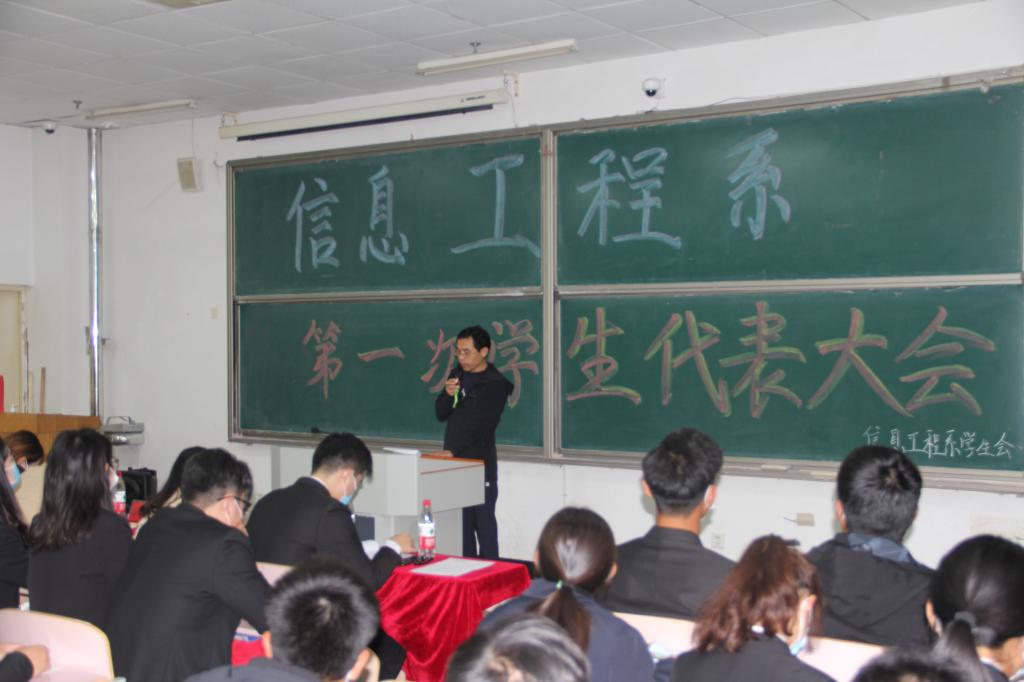 信息工程系
第一次学生代表大会
信息工程系学生会